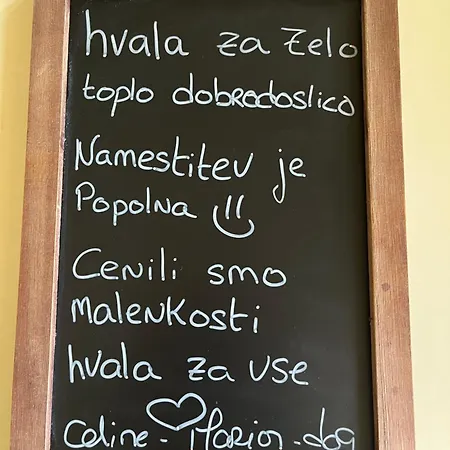 hvala za zelo
toplo dobrodoslico
Namestitev je
Popolna
Cenili smo
malenkosti
hvala za vse
Celine - Marion - dog